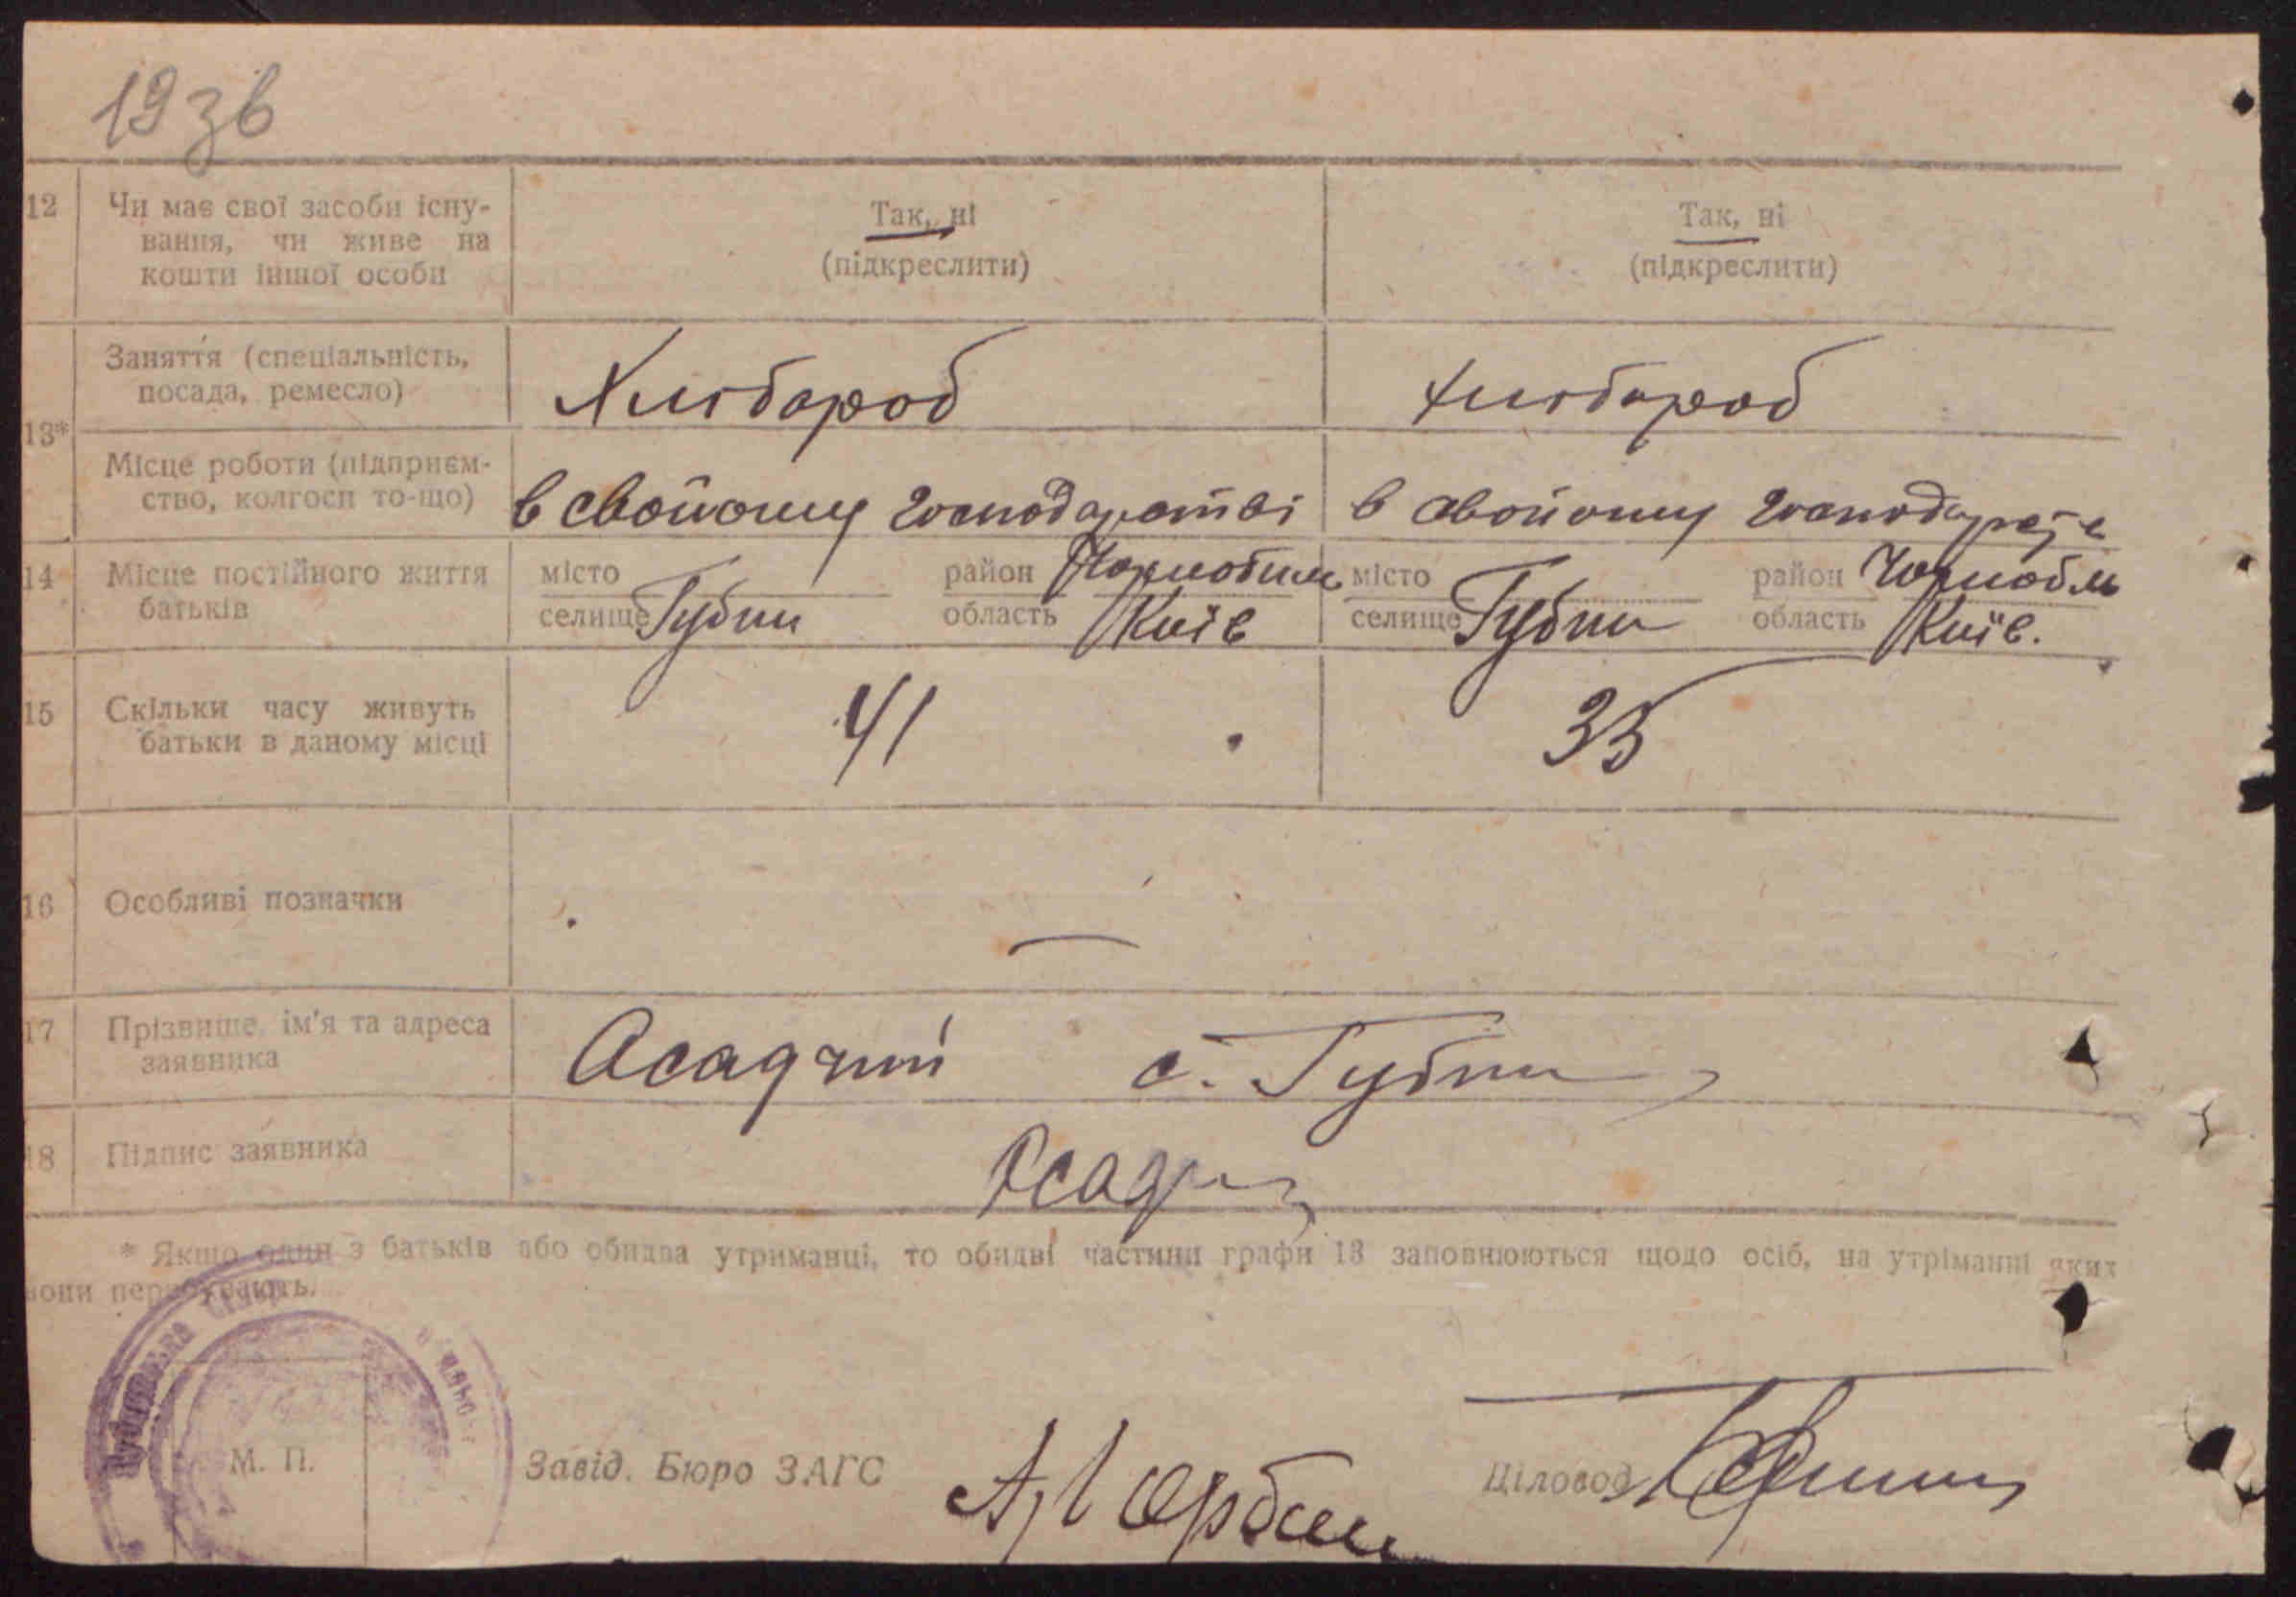 1936
12 Чи має свої засоби існу-
вання, чи живе на
кошти іншої особи
Так, ні
(підкреслити)
Так, ні
(підкреслити)
13*
Заняття (спеціальність,
посада, ремесло)
Хлібороб
Хлібороб
Місце роботи (підприєм-
ство, колгосп то-що)
в свойому господарстві
в свойому
14 Місце постійного життя
батьків
місто
селище Губин
район
область Київ
місто
селище Губин
район
область Київ.
15 Скільки часу живуть
батьки в даному місці
41
35
16 Особливі позначки
—
17 Прізвище, ім'я та адреса
заявника
Асадчий с. Губин
18 Підпис заявника
* Якщо один з батьків або обидва утриманці, то обидві частини графи 13 заповнюються щодо осіб, на утріманні яких
вони перебувають.
М. П.
Завід. Бюро ЗАГС
Діловод